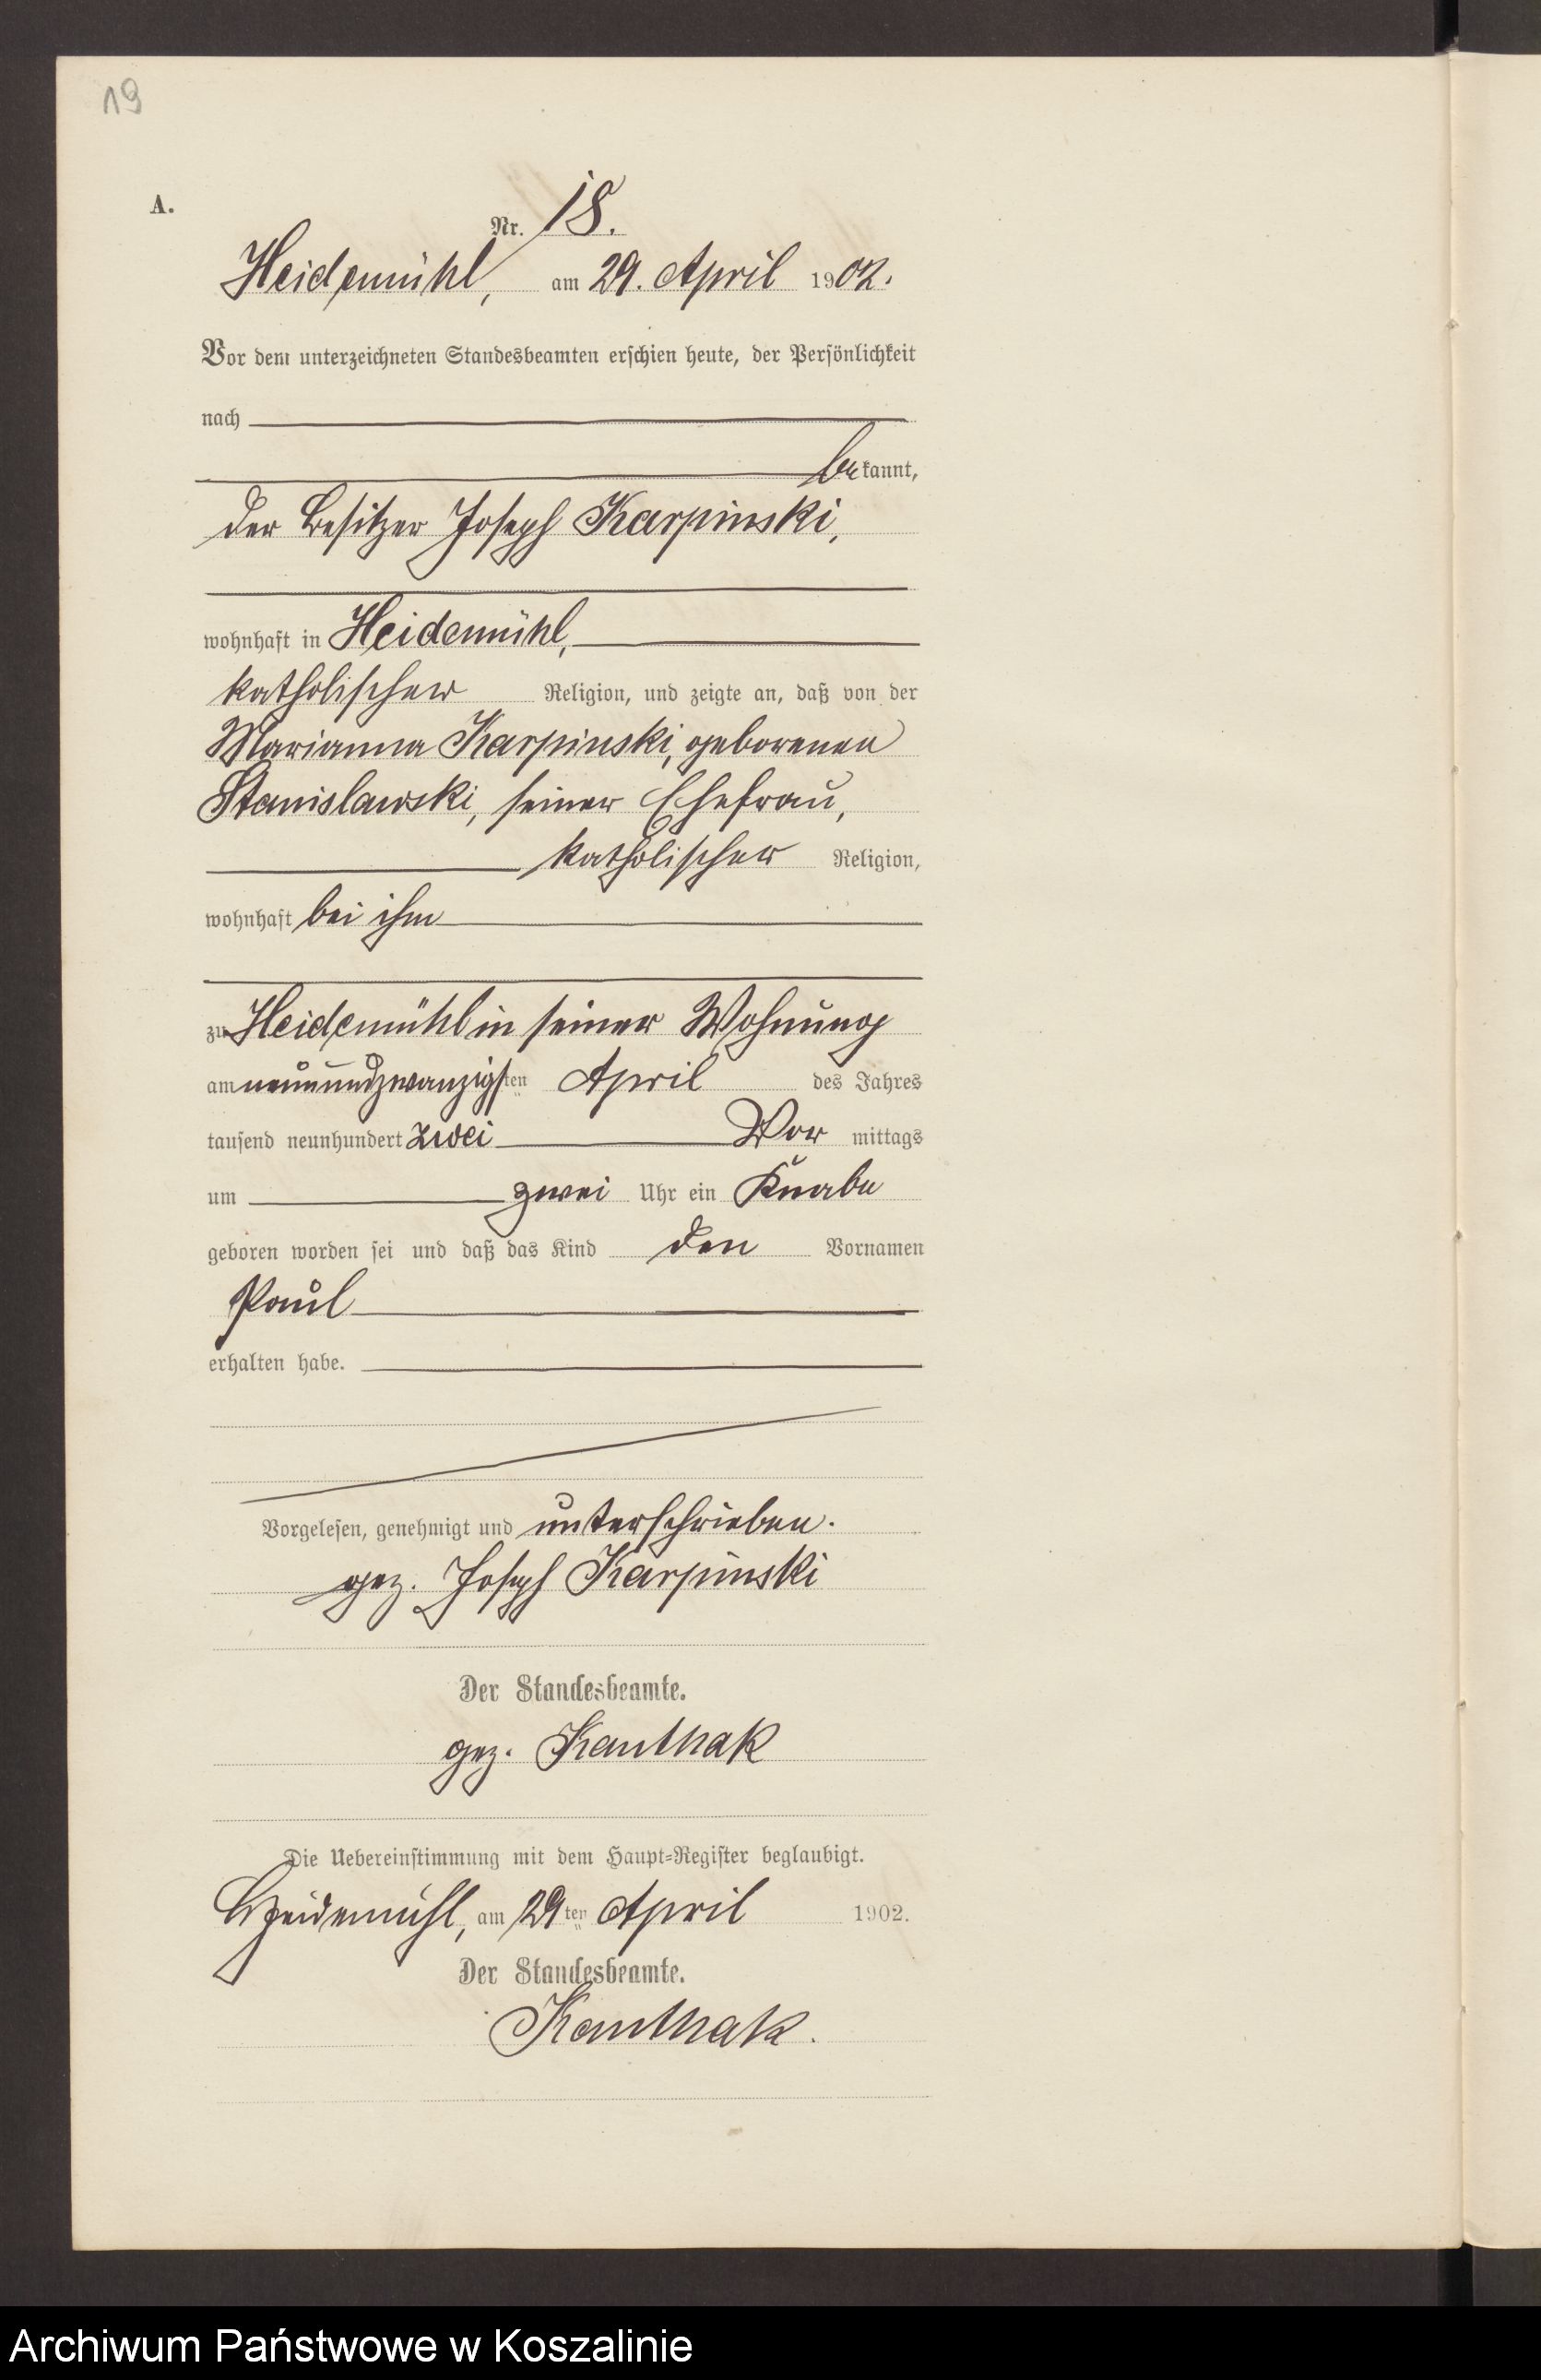 19
A.
Nr. 18.
Heidemühl, am 29. April 1902.
Vor dem unterzeichneten Standesbeamten erschien heute, der Persönlichkeit
nach
bekannt,
der Besitzer Joseph Karpinski,
wohnhaft in Heidemühl,
katholischer Religion, und zeigte an, daß von der
Marianna Karpinski, geborenen
Stanislawski, seiner Ehefrau,
katholischer Religion,
wohnhaft bei ihm
zu Heidemühl in seiner Wohnung
am neunundzwanzigsten April des Jahres
tausend neunhundert zwei Vor mittags
um zwei Uhr ein Knabe
geboren worden sei und daß das Kind den Vornamen
Paul
erhalten habe.
Vorgelesen, genehmigt und unterschrieben.
gez. Joseph Karpinski
Der Standesbeamte.
gez. Kanthak
Die Uebereinstimmung mit dem Haupt-Register beglaubigt.
Heidemühl, am 29ten April 1902.
Der Standesbeamte.
Kanthak.
Archiwum Państwowe w Koszalinie